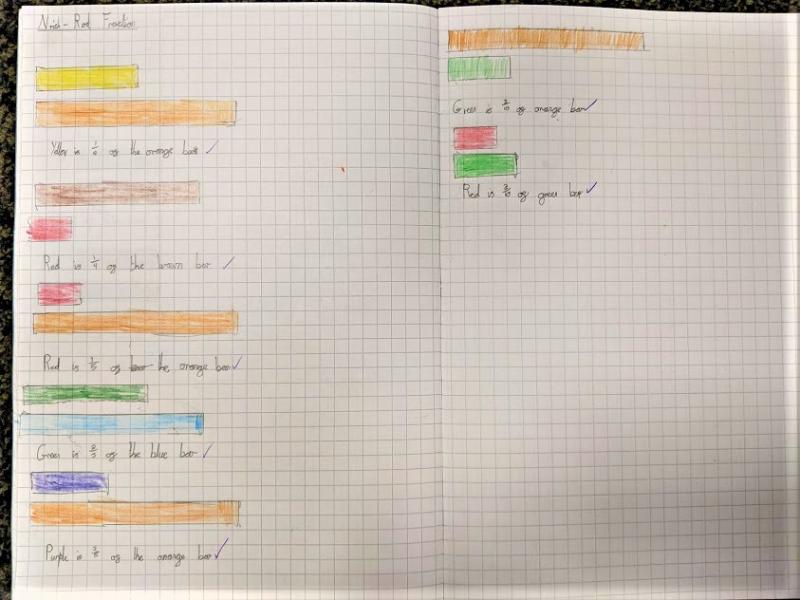 Nrich-Rod Fraction
Yellow is ½ of the orange bar
Red is ¼ of the brown bar
Red is ⅕ of the orange bar
Green is ⅔ of the blue bar
Purple is of the orange bar
Green is 3/10 of orange bar
Red is of green bar